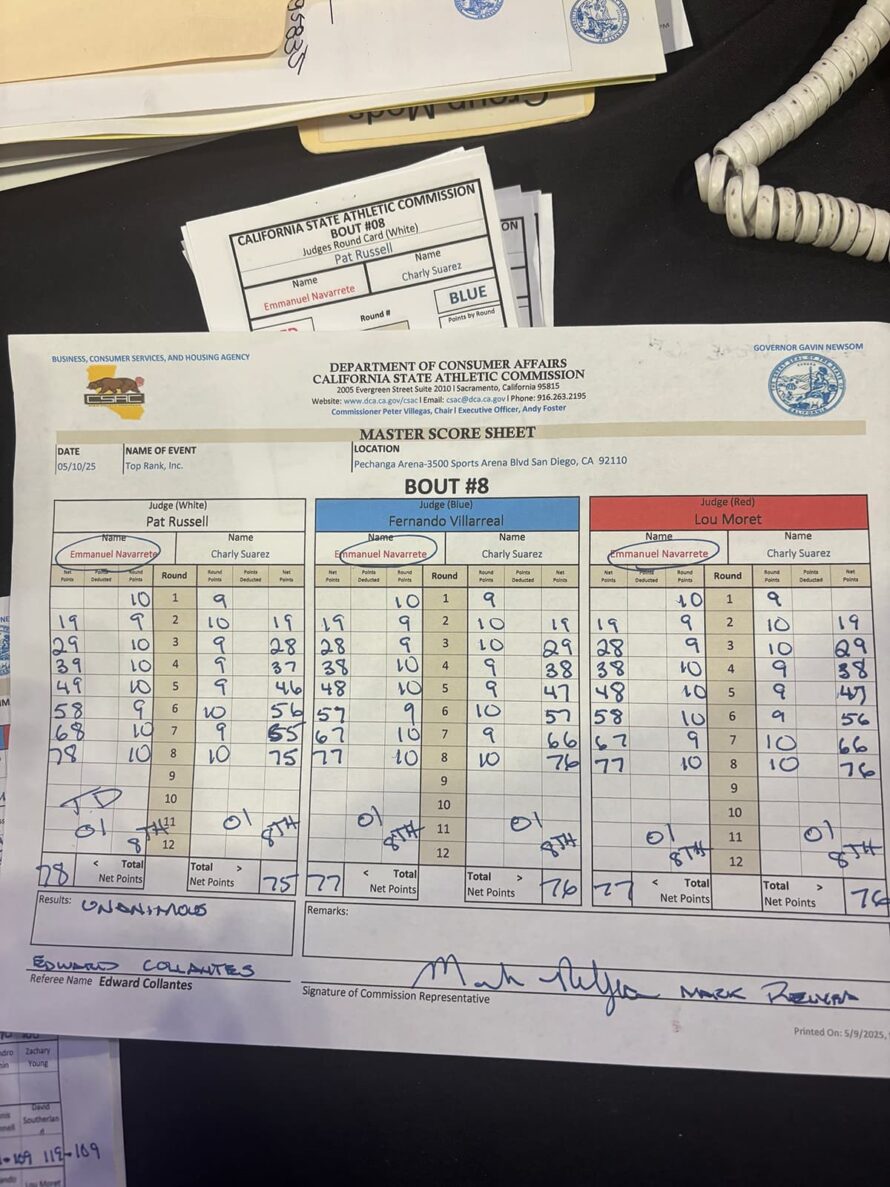 95835
Group Meds
CALIFORNIA STATE ATHLETIC COMMISSION
BOUT #08
Judges Round Card (White)
Pat Russell
Name Name
Emmanuel Navarrete Charly Suarez
Round # BLUE
Points by Round
ON
BUSINESS, CONSUMER SERVICES, AND HOUSING AGENCY
GOVERNOR GAVIN NEWSOM
CSAC
DEPARTMENT OF CONSUMER AFFAIRS
CALIFORNIA STATE ATHLETIC COMMISSION
2005 Evergreen Street Suite 2010 | Sacramento, California 95815
Website: www.dca.ca.gov/csac | Email: csac@dca.ca.gov | Phone: 916.263.2195
Commissioner Peter Villegas, Chair | Executive Officer, Andy Foster
MASTER SCORE SHEET
DATE NAME OF EVENT LOCATION
05/10/25 Top Rank, Inc. Pechanga Arena-3500 Sports Arena Blvd San Diego, CA 92110
BOUT #8
Judge (White) Judge (Blue) Judge (Red)
Pat Russell Fernando Villarreal Lou Moret
Name Name Name Name Name Name
Emmanuel Navarrete Charly Suarez Emmanuel Navarrete Charly Suarez Emmanuel Navarrete Charly Suarez
Net Points Points Deducted Round Points Round Round Points Points Deducted Net Points Net Points Points Deducted Round Points Round Round Points Points Deducted Net Points Net Points Points Deducted Round Points Round Round Points Points Deducted Net Points
10 1 9 10 1 9 10 1 9
19 9 2 10 19 19 9 2 10 19 19 9 2 10 19
29 10 3 9 28 28 9 3 10 29 28 9 3 10 29
39 10 4 9 37 38 10 4 9 38 38 10 4 9 38
49 10 5 9 46 48 10 5 9 47 48 10 5 9 47
58 9 6 10 56 57 9 6 10 57 58 10 6 9 56
68 10 7 9 65 67 10 7 9 66 67 9 7 10 66
78 10 8 10 75 77 10 8 10 76 77 10 8 10 76
9 9 9
TD 10 10 10
01 11 01 01 11 01 01 11 01
8TH 12 8TH 8TH 12 8TH 8TH 12 8TH
78 < Total Net Points Total > Net Points 75 77 < Total Net Points Total > Net Points 76 77 < Total Net Points Total > Net Points 76
Results: UNANIMOUS
Remarks:
EDWARD COLLANTES
Referee Name Edward Collantes
Signature of Commission Representative
MARK
Printed On: 5/9/2025,
Zachary
Young
David
Southerlan
d
119-109
Lou Moret